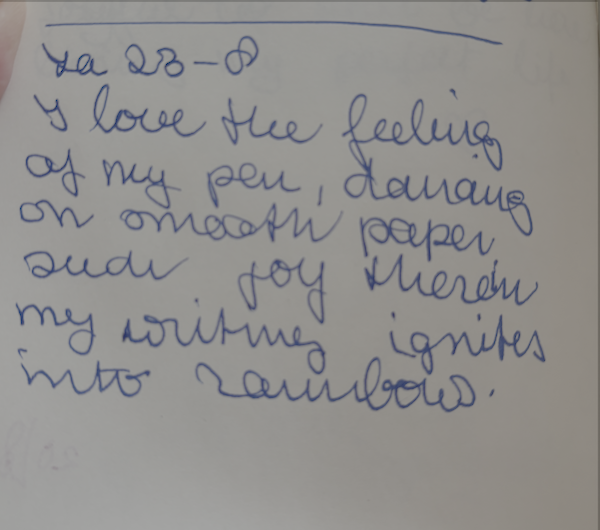 za 23-8
I love the feeling
of my pen, dancing
on smooth paper
such joy therein
my writing ignites
into rainbows.